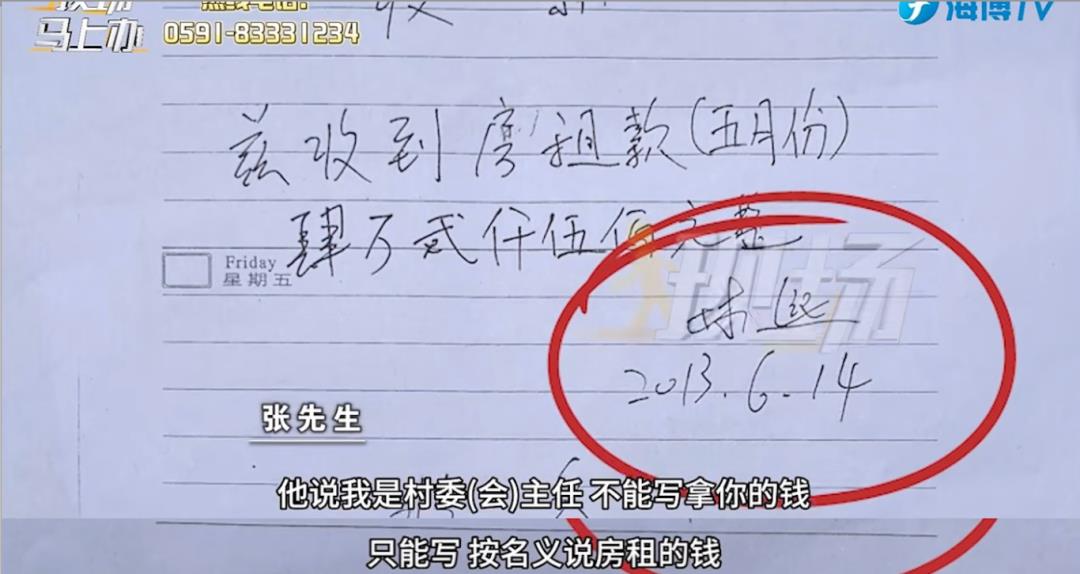 现场
马上办
热线电话:
0591-83331234
海博TV
收 据
兹收到房租款(五月份)
肆万贰仟伍佰元整
Friday
星期五
现场
2013.6.14
张先生
他说我是村委(会)主任 不能写拿你的钱
只能写 按名义说房租的钱